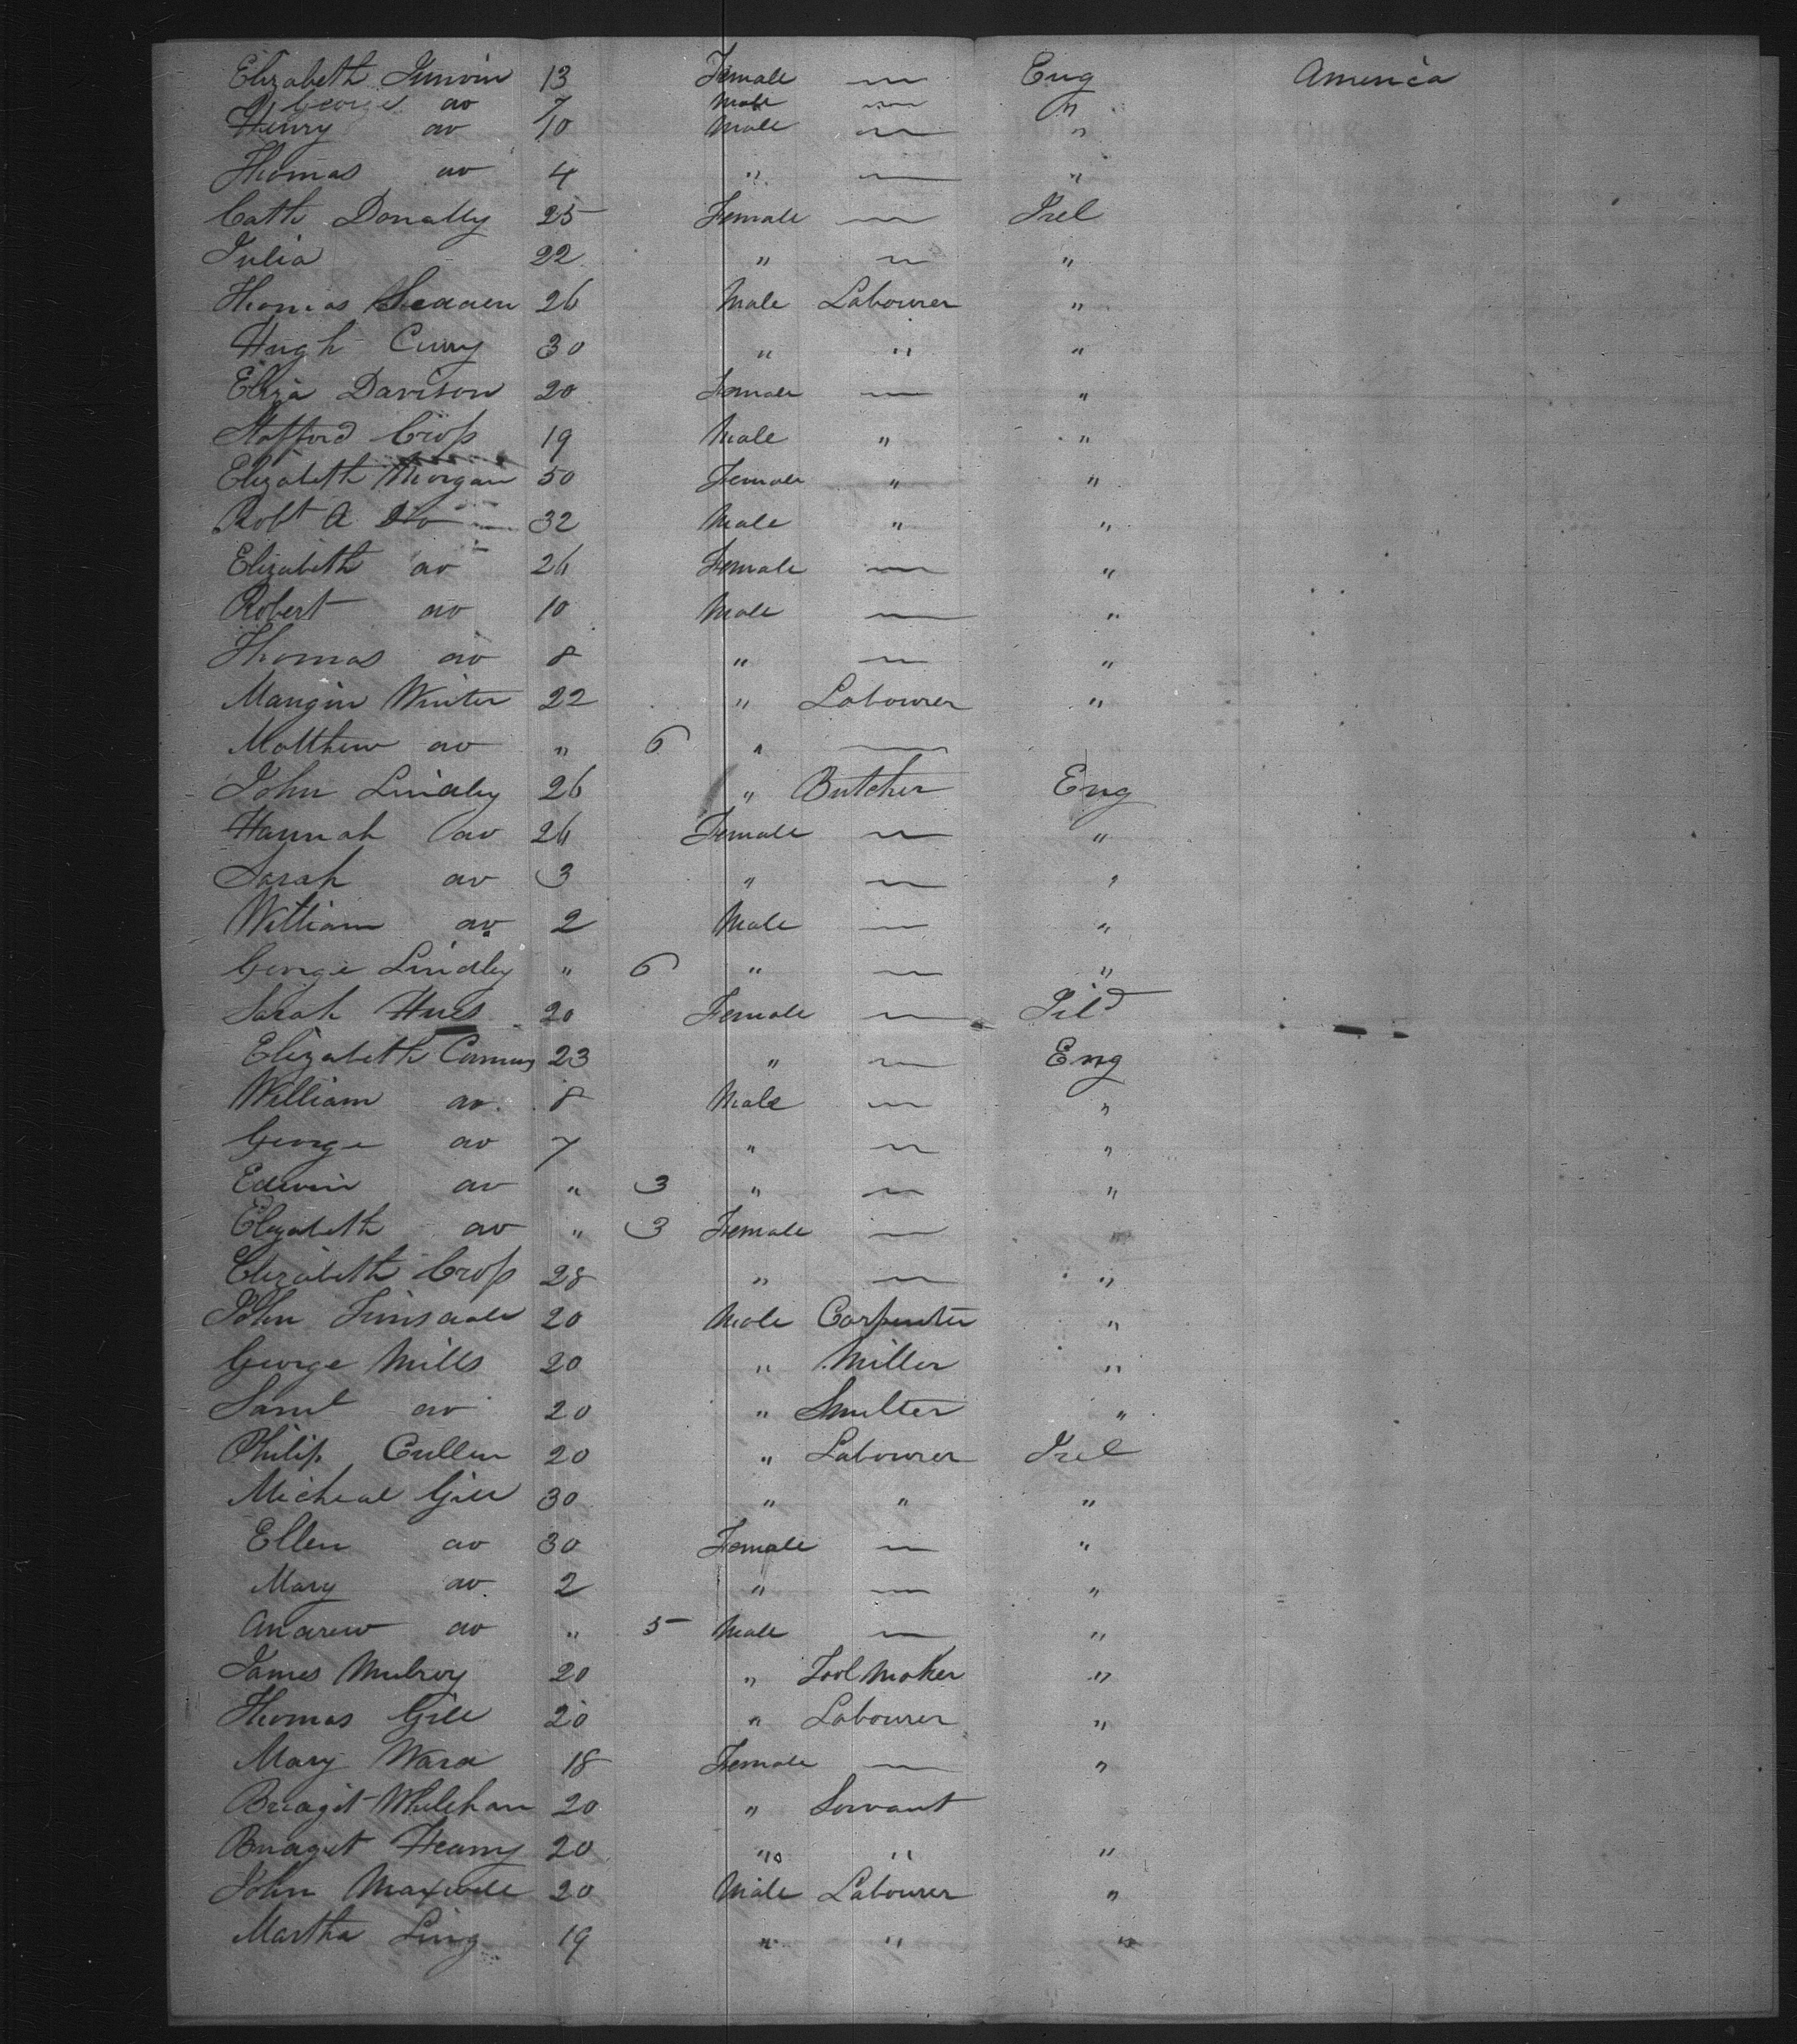 Elizabeth 13 Female — Eng America
George do 7 Male — "
Henry do 10 Male — "
Thomas do 4 " — "
Cath Donally 25 Female — Irel
Julia 22 " — "
Thomas 26 Male Labourer "
Hugh Curry 30 " " "
Eliza Davison 20 Female — "
Stafford Cross 19 Male " "
Elizabeth Morgan 50 Female " "
Robt A Do 32 Male " "
Elizabeth do 26 Female — "
Robert do 10 Male — "
Thomas do 8 " — "
Mangin Winter 22 " Labourer "
Matthew do " 6 " — "
John Lindley 26 " Butcher Eng
Hannah do 26 Female — "
Sarah do 3 " — "
William do 2 Male — "
George Lindley " 6 " — "
Sarah Hues 20 Female —
Elizabeth 23 " — Eng
William do 8 Male — "
George do 7 " — "
Edwin do " 3 " — "
Elizabeth do " 3 Female — "
Elizabeth Cross 28 " — "
John 20 Male Carpenter "
George Mills 20 " Miller "
Saml do 20 " Smelter "
Philip Cullen 20 " Labourer Irel
Micheal Gill 30 " " "
Ellen do 30 Female — "
Mary do 2 " — "
Andrew do " 5 Male — "
James Mulroy 20 " Tool Maker "
Thomas Gill 20 " Labourer "
Mary Ward 18 Female — "
Bridgit 20 " Servant
Bridget Heany 20 " " "
John Maxwell 20 Male Labourer "
Martha Ling 19 " " "